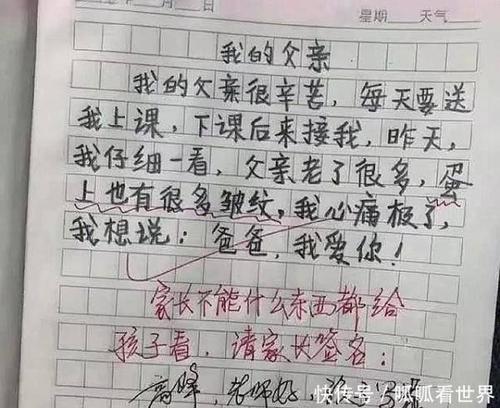 星期 天气
我的父亲
我的父亲很辛苦，每天要送
我上课，下课后来接我，昨天，
我仔细一看，父亲老了很多，蛋
上也有很多皱纹，我心痛极了，
我想说：爸爸，我爱你！
家长不能什么东西都给
孩子看，请家长签名：
高峰，老师好，
快传号/呱呱看世界